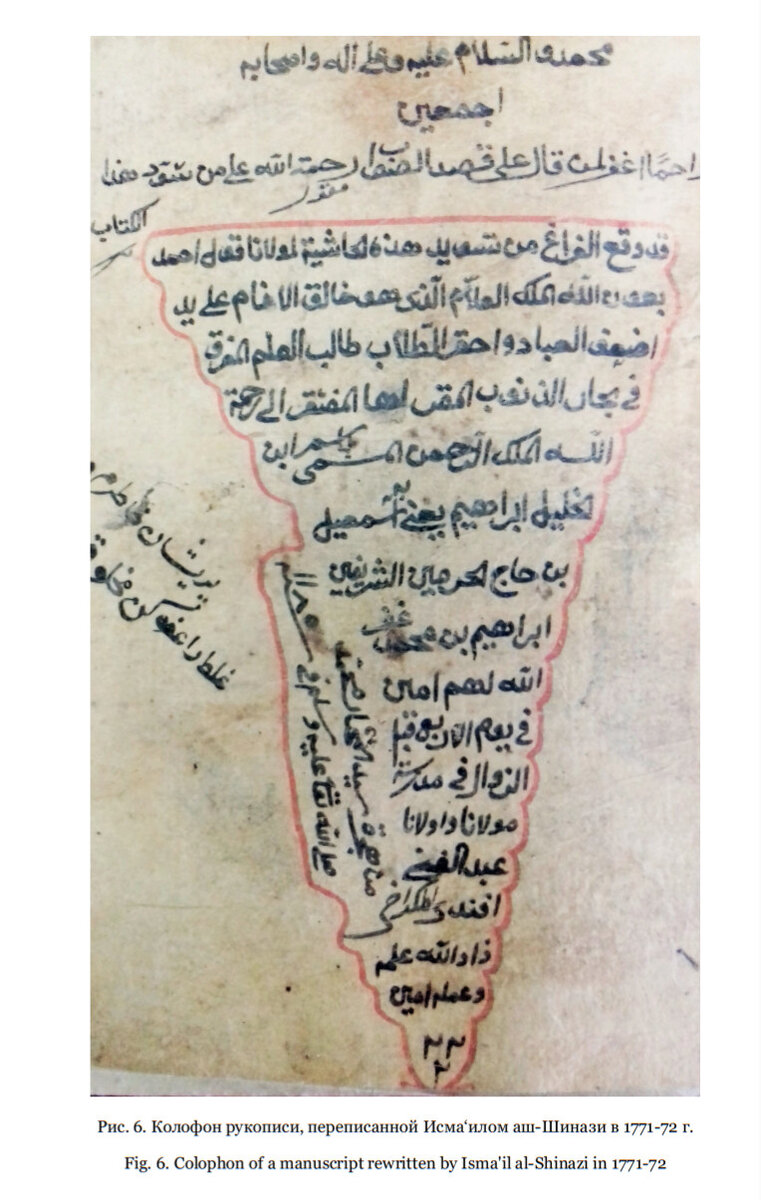 محمد والسلام عليه وعلى اله واصحابه
اجمعين
راحما اغفر لمن قال على قصد رحمة الله على من سود هذا
الكتاب
قد وقع الفراغ من تسويد هذه الحاشية لمولانا قول احمد
بعون الله الملك العلام الذى هو خالق الانام على يد
اضعف العباد واحقر الطلاب طالب العلم الغرق
في بحار الذنوب المقر لها المفتقر الى رحمة
الله الملك الرحمن المسمى باسم ابن
الخليل ابراهيم يعني اسمعيل
بن حاج الحرمين الشريفين
ابراهيم بن محمد غفر
الله لهم امين
في يوم قبل
الزوال في مدرسة
مولانا واولانا
عبد الغني
افندى
زاد الله علمه
وعمله امين
من هجرة سيد محمد
صلى الله تعالى عليه وسلم في سنة
غلط
Рис. 6. Колофон рукописи, переписанной Исма‘илом аш-Шинази в 1771-72 г.
Fig. 6. Colophon of a manuscript rewritten by Isma'il al-Shinazi in 1771-72